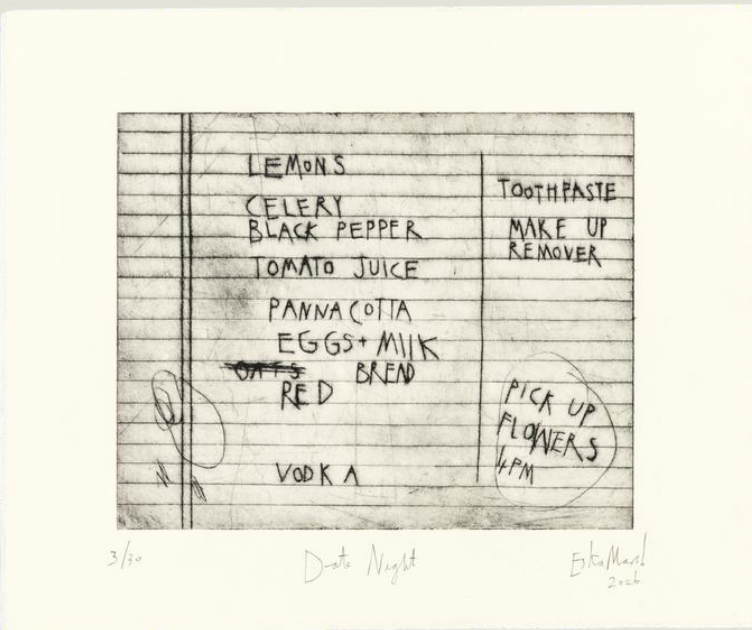 LEMONS
CELERY
BLACK PEPPER
TOMATO JUICE
PANNACOTTA
EGGS + MIlK
OATS BREAD
RED
VODKA
TOOTHPASTE
MAKE UP
REMOVER
PICK UP
FLOWERS
4PM
3/30
Date Night
2026